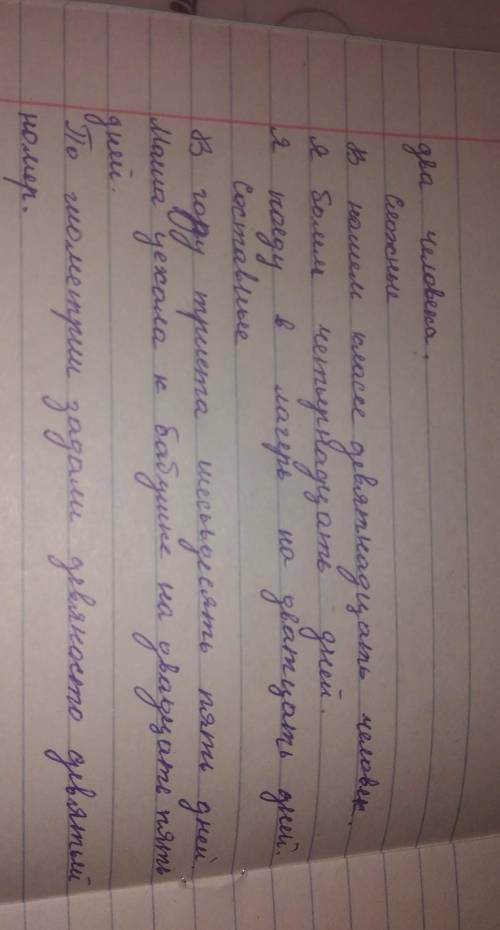 два человека.
Сложные
В нашем классе девятнадцать человек.
Я болел четырнадцать дней.
Я поеду в лагерь на дватцать дней.
Составные
В году триста шесьдесять пять дней.
Маша уехала к бабушке на двадцать пять
дней.
По геометрии задали девяносто девятый
номер.